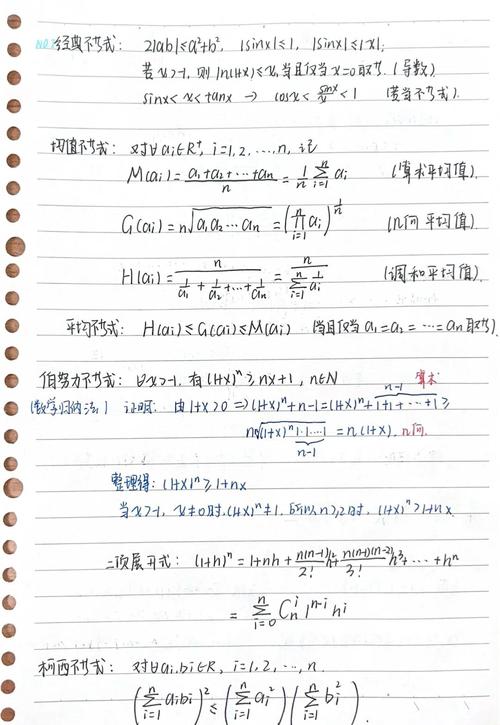 经典不等式: 2|ab|≤a²+b², |sinx|≤1, |sinx|≤|x|,
若x>-1, 则 ln(1+x)≤x, 当且仅当 x=0取等. (导数)
sinx<x<tanx → cosx<sinx/x<1 (若当不等式).
均值不等式: 对∀ai∈R⁺, i=1,2,...,n, 记
M(ai)=(a₁+a₂+...+an)/n=1/n ∑(i=1→n) ai (算术平均值)
G(ai)=n√(a₁a₂...an)=(∏(i=1→n) ai)^(1/n) (几何平均值)
H(ai)=n/(1/a₁+1/a₂+...+1/an)=n/(∑(i=1→n) 1/ai) (调和平均值)
平均不等式: H(ai)≤G(ai)≤M(ai) (当且仅当 a₁=a₂=...=an取等)
伯努力不等式: ∀x>-1, 有(1+x)ⁿ≥nx+1, n∈N n-1 算术
(数学归纳法) 证明: 由1+x>0⇒(1+x)ⁿ+n-1=(1+x)ⁿ+1+1+...+1≥
n n√((1+x)ⁿ·1·1...1)=n(1+x). 几何.
n-1
整理得: (1+x)ⁿ≥1+nx
当x>-1, x≠0时, (1+x)ⁿ≠1. 所以n≥2时, (1+x)ⁿ>1+nx.
二项展开式: (1+h)ⁿ=1+nh+n(n-1)/2! h²+n(n-1)(n-2)/3! h³+...+hⁿ
=∑(i=0→n) Cₙⁱ 1ⁿ⁻ⁱ hⁱ
柯西不等式: 对∀ai,bi∈R, i=1,2,...,n.
(∑(i=1→n) aibi)²≤(∑(i=1→n) ai²)(∑(i=1→n) bi²).